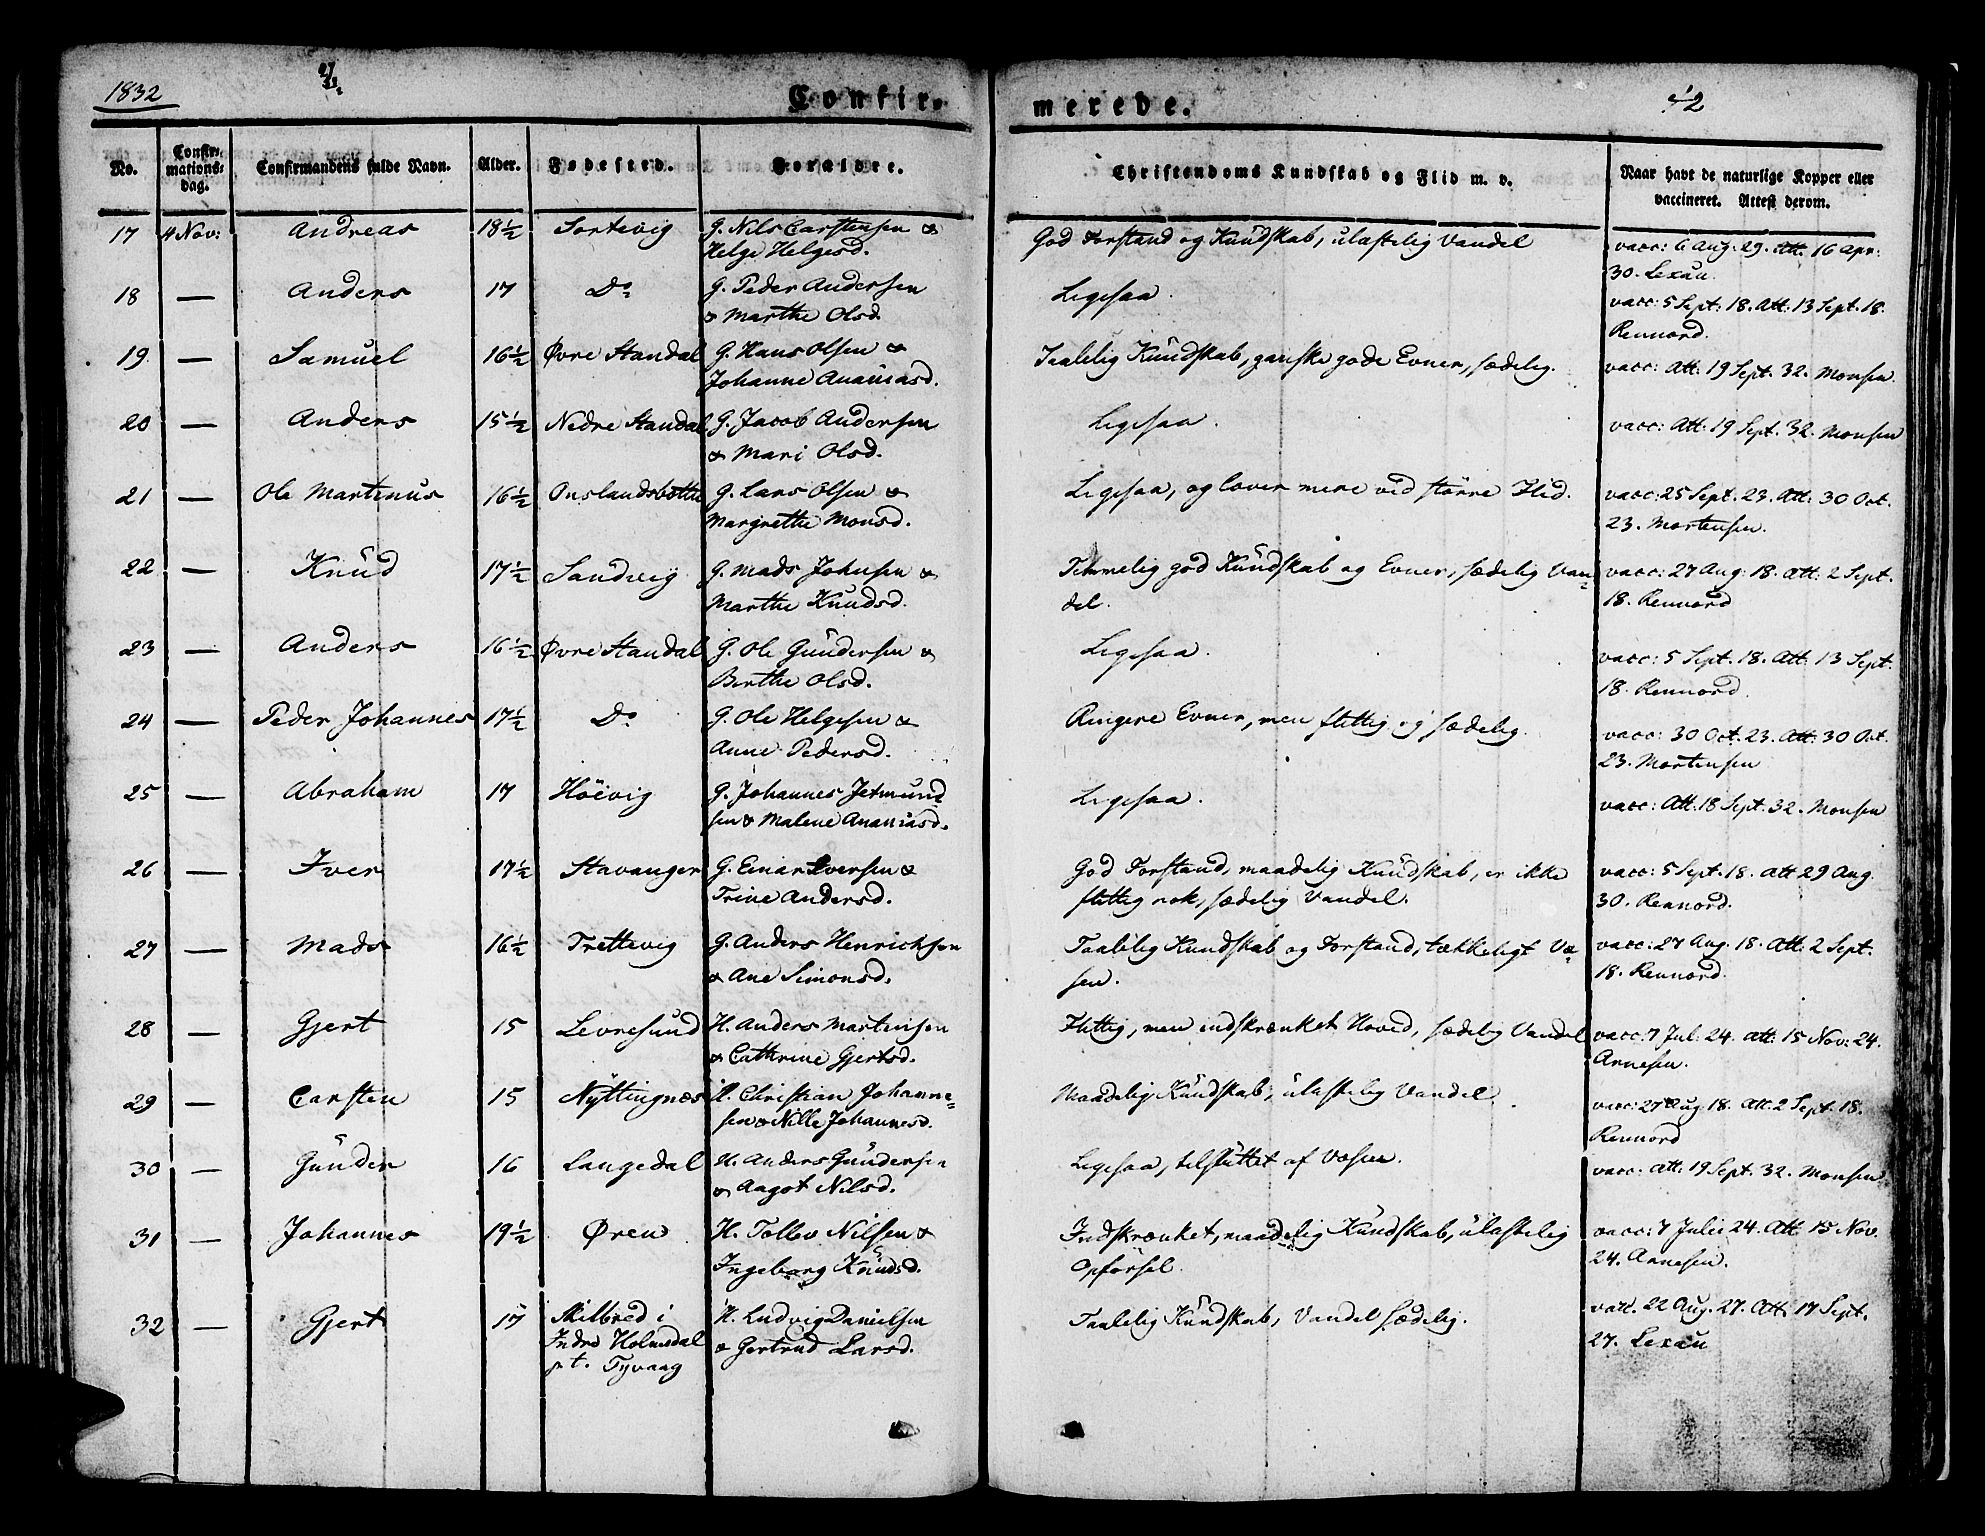 1832
Confir-
merede.
42
No.
Confir-
mations-
dag.
Confirmandens fulde Navn.
Alder.
Fødested.
Forældre.
Christendoms Kundskab og Flid m. v.
Naar havt de naturlige Kopper eller
vaccineret. Attest derom.
17 4 Nov: Andreas 18½ Sortevig G. Nils Carstensen &
Helge Helgesd.
God Forstand og Kundskab, ulastelig Vandel
vacc: 6 Aug. 29. Att. 16 Apr:
30. Lexau.
18 — Anders 17 Do G. Peder Andersen
& Marthe Olsd.
Ligesaa.
vacc: 5 Sept: 18. Att: 13 Sept. 18.
Rennord.
19. — Samuel 16½ Øvre Standal G. Hans Olsen &
Johanne Ananiasd.
Taalelig Kundskab, ganske gode Evner, sædelig.
vacc: Att: 19 Sept. 32. Monsen.
20 — Anders 15½ Nedre Standal G. Jacob Andersen
& Mari Olsd.
Ligesaa.
vacc: Att: 19 Sept. 32. Monsen
21 — Ole Martinus 16½ Onslandsbotten G. Lars Olsen &
Margrethe Monsd.
Ligesaa, og lover mere ved större Flid.
vacc: 25 Sept. 23. Att: 30 Oct.
23. Mortensen.
22 — Knud 17½ Sandvig G. Mads Johnsen &
Marthe Knudsd.
Temmelig god Kundskab og Evner, sædelig Van-
del.
vacc: 27 Aug: 18. Att: 2 Sept.
18. Rennord
23 — Anders 16½ Øvre Standal G. Ole Gundersen &
Berthe Olsd.
Ligesaa.
vacc: 5 Sept. 18. Att: 13 Sept.
18. Rennord.
24 — Peder Johannes 17½ Do G. Ole Helgesen &
Anne Pedersd.
Ringere Evner, men flittig og sædelig.
vacc: 30 Oct. 23. Att: 30 Oct.
23. Mortensen
25 — Abraham 17 Höivig G. Johannes Jetmund-
sen & Malene Ananiasd.
Ligesaa.
vacc: Att: 18 Sept. 32. Monsen
26 — Iver 17½ Stavanger G. Einar Iversen &
Trine Andersd.
God Forstand, maadelig Kundskab, er ikke
flittig nok, sædelig Vandel.
vacc: 5 Sept. 18. Att 29 Aug.
30. Rennord.
27 — Mads 16½ Trettevig G. Anders Henrichsen
& Ane Simonsd.
Taalelig Kundskab og Forstand, tækkeligt Væ-
sen.
vacc: 27 Aug. 18. Att: 2 Sept.
18. Rennord.
28 — Gjert 15 Levresund H. Anders Martinsen
& Cathrine Gjertsd.
Flittig, men indskrænket Hoved, sædelig Vandel
vacc: 7 Jul: 24. Att: 15 Nov: 24.
Arnesen.
29 — Carsten 15 Nyttingnæs H. Christian Johanne-
sen & Nille Johannesd.
Maadelig Kundskab, ulastelig Vandel.
vacc: 27 Aug. 18. Att: 2 Sept. 18.
Rennord
30 — Gunder 16 Langedal H. Anders Gundersen
& Aagot Nilsd.
Ligesaa, tilsluttet af Væsen.
vacc: Att: 19 Sept. 32. Monsen
31 — Johannes 19½ Øren H. Tollev Nilsen &
Ingeborg Knudsd.
Indskrænket, maadelig Kundskab, ulastelig
Opförsel.
vacc: 7 Julii 24. Att. 15 Nov.
24. Arnesen.
32 — Gjert 17 Skilbred i
Indre Holmedal
p. t. Tyvaag
H. Ludvig Danielsen
& Gertrud Larsd.
Taalelig Kundskab, Vandel sædelig.
vacc. 22 Aug. 27. Att. 17 Sept.
27. Lexau